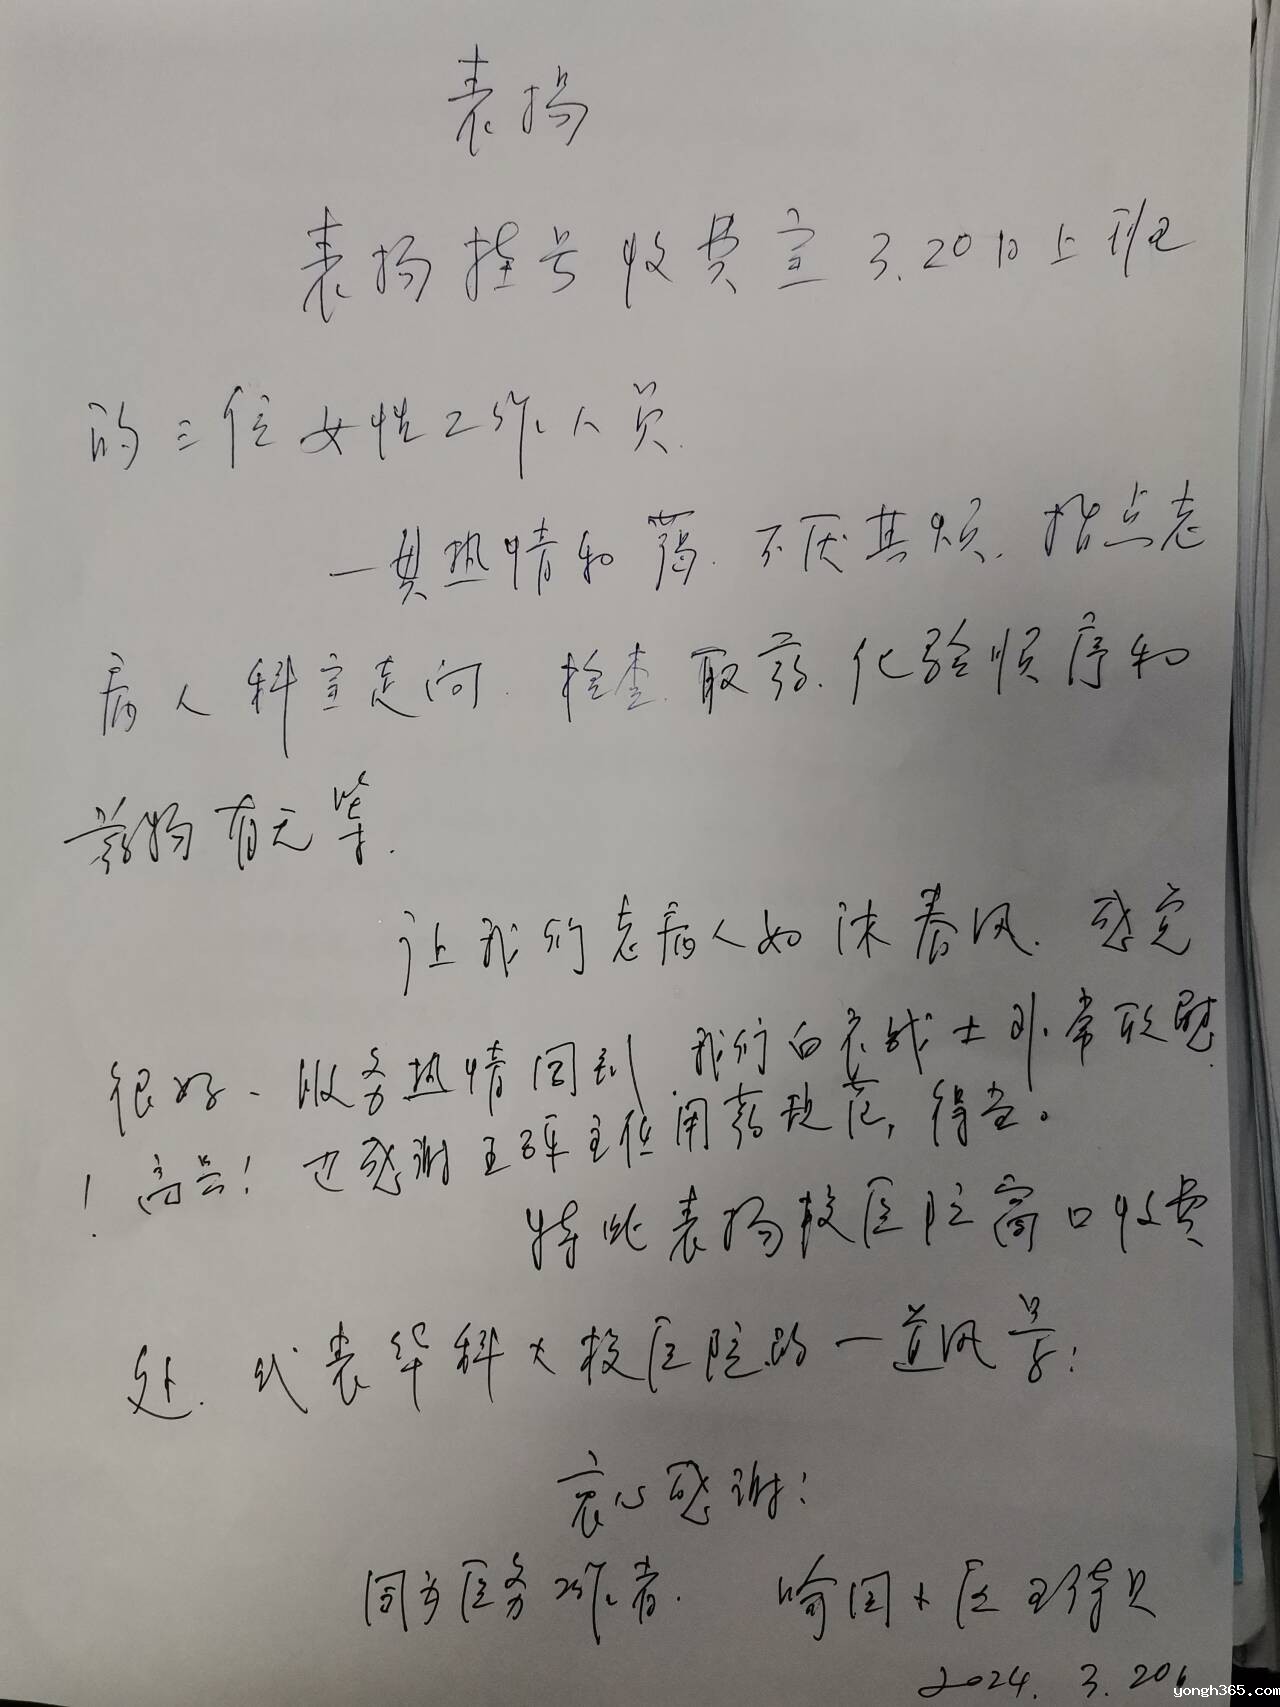 表扬
表扬挂号收费室3.20日上班
的三位女性工作人员.
一貫热情和蔼.不厌其烦.指点老
病人科室走向.检查.取药.化验顺序和
药物有无等.
让我们老病人如沐春风.感觉
很好、服务热情周到 我们白衣战士非常欣慰
!高兴!也感谢王 主任用药规范,得当。
特此表扬校医院窗口收费
处.代表华科大校医院的一道风景:
衷心感谢!
同为医务工作者. 医
2024.3.20日
yongh365.com